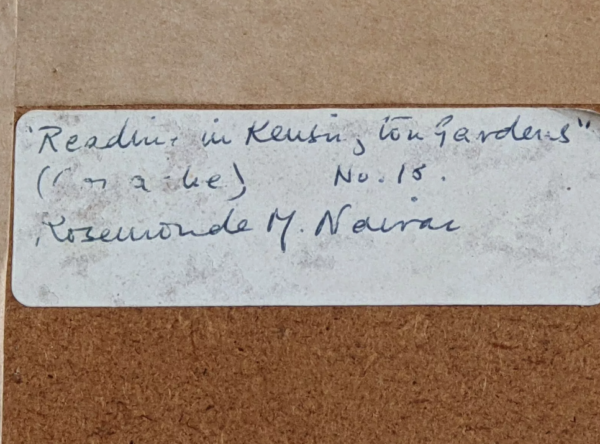 "Reading in Kensington Gardens"
No. 15.
Rosemonde M. Nairac